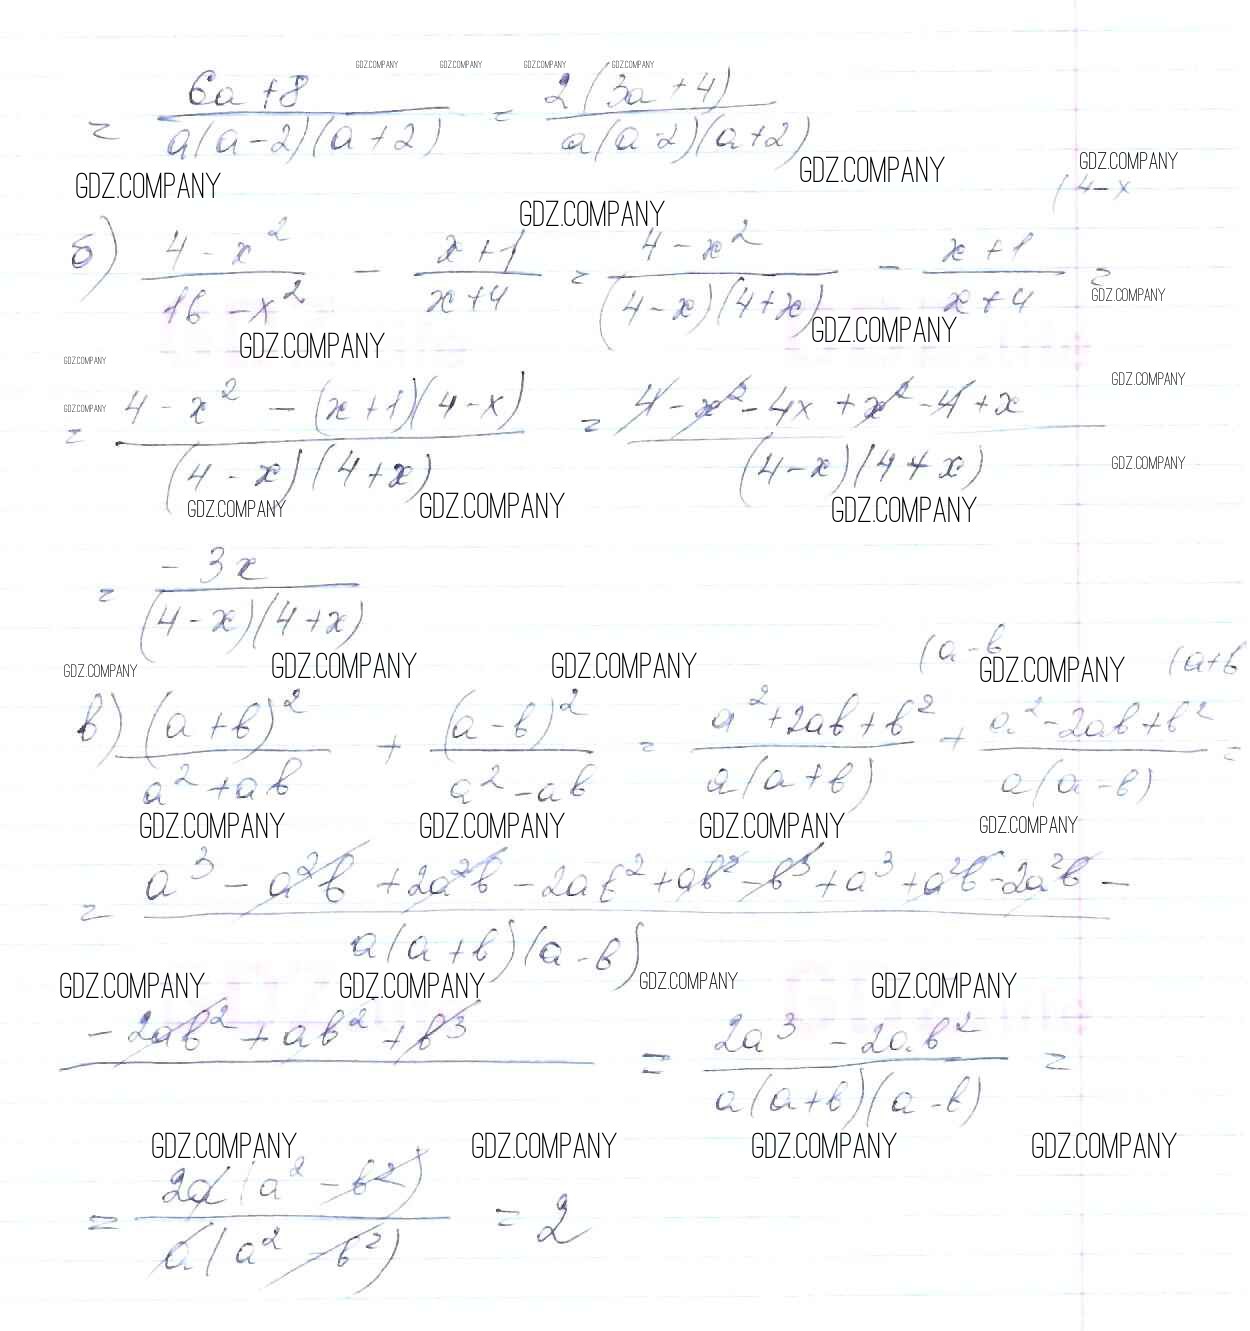 GDZ.COMPANY GDZ.COMPANY GDZ.COMPANY GDZ.COMPANY
= (6a+8)/(a(a-2)(a+2)) = (2(3a+4))/(a(a-2)(a+2))
GDZ.COMPANY GDZ.COMPANY GDZ.COMPANY
(4-x
GDZ.COMPANY
б) (4-x²)/(16-x²) - (x+1)/(x+4) = (4-x²)/((4-x)(4+x)) - (x+1)/(x+4) =
GDZ.COMPANY
GDZ.COMPANY GDZ.COMPANY
GDZ.COMPANY GDZ.COMPANY
GDZ.COMPANY
= (4-x²-(x+1)(4-x))/((4-x)(4+x)) = (4-x²-4x+x²-4+x)/((4-x)(4+x))
GDZ.COMPANY
GDZ.COMPANY GDZ.COMPANY GDZ.COMPANY
= (-3x)/((4-x)(4+x))
(a-в (a+в
GDZ.COMPANY GDZ.COMPANY GDZ.COMPANY GDZ.COMPANY
в) (a+в)²/(a²+aв) + (a-в)²/(a²-aв) = (a²+2aв+в²)/(a(a+в)) + (a²-2aв+в²)/(a(a-в)) =
GDZ.COMPANY GDZ.COMPANY GDZ.COMPANY GDZ.COMPANY
= (a³-a²в+2a²в-2aв²+aв²-в³+a³+a²в-2a²в-)/(a(a+в)(a-в))
GDZ.COMPANY GDZ.COMPANY GDZ.COMPANY GDZ.COMPANY
-2aв²+aв²+в³ = (2a³-2aв²)/(a(a+в)(a-в)) =
GDZ.COMPANY GDZ.COMPANY GDZ.COMPANY GDZ.COMPANY
= (2a(a²-в²))/(a(a²-в²)) = 2